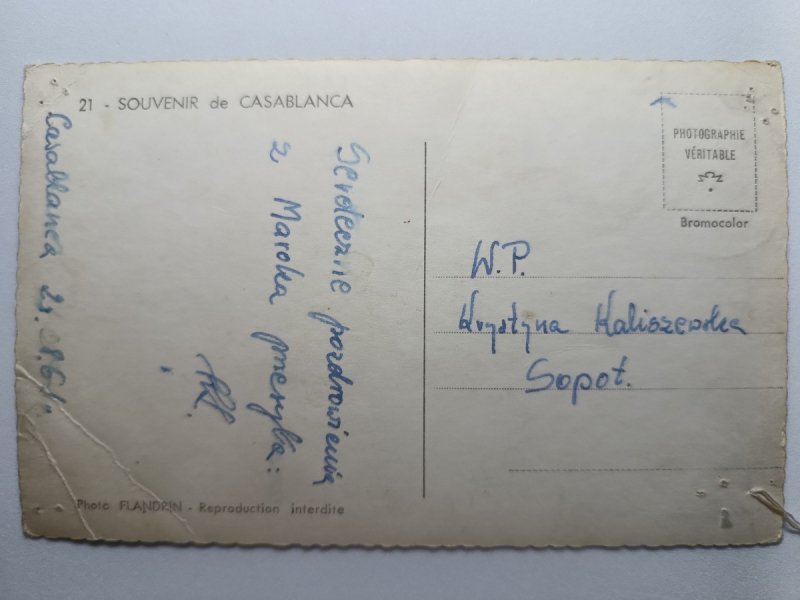 21 - SOUVENIR de CASABLANCA
Casablanca
Serdecznie pozdrowienia
z Maroka przesyła:
PHOTOGRAPHIE
VÉRITABLE
Bromocolor
W.P.
Krystyna Kaliszewska
Sopot.
Photo FLANDRIN - Reproduction interdite